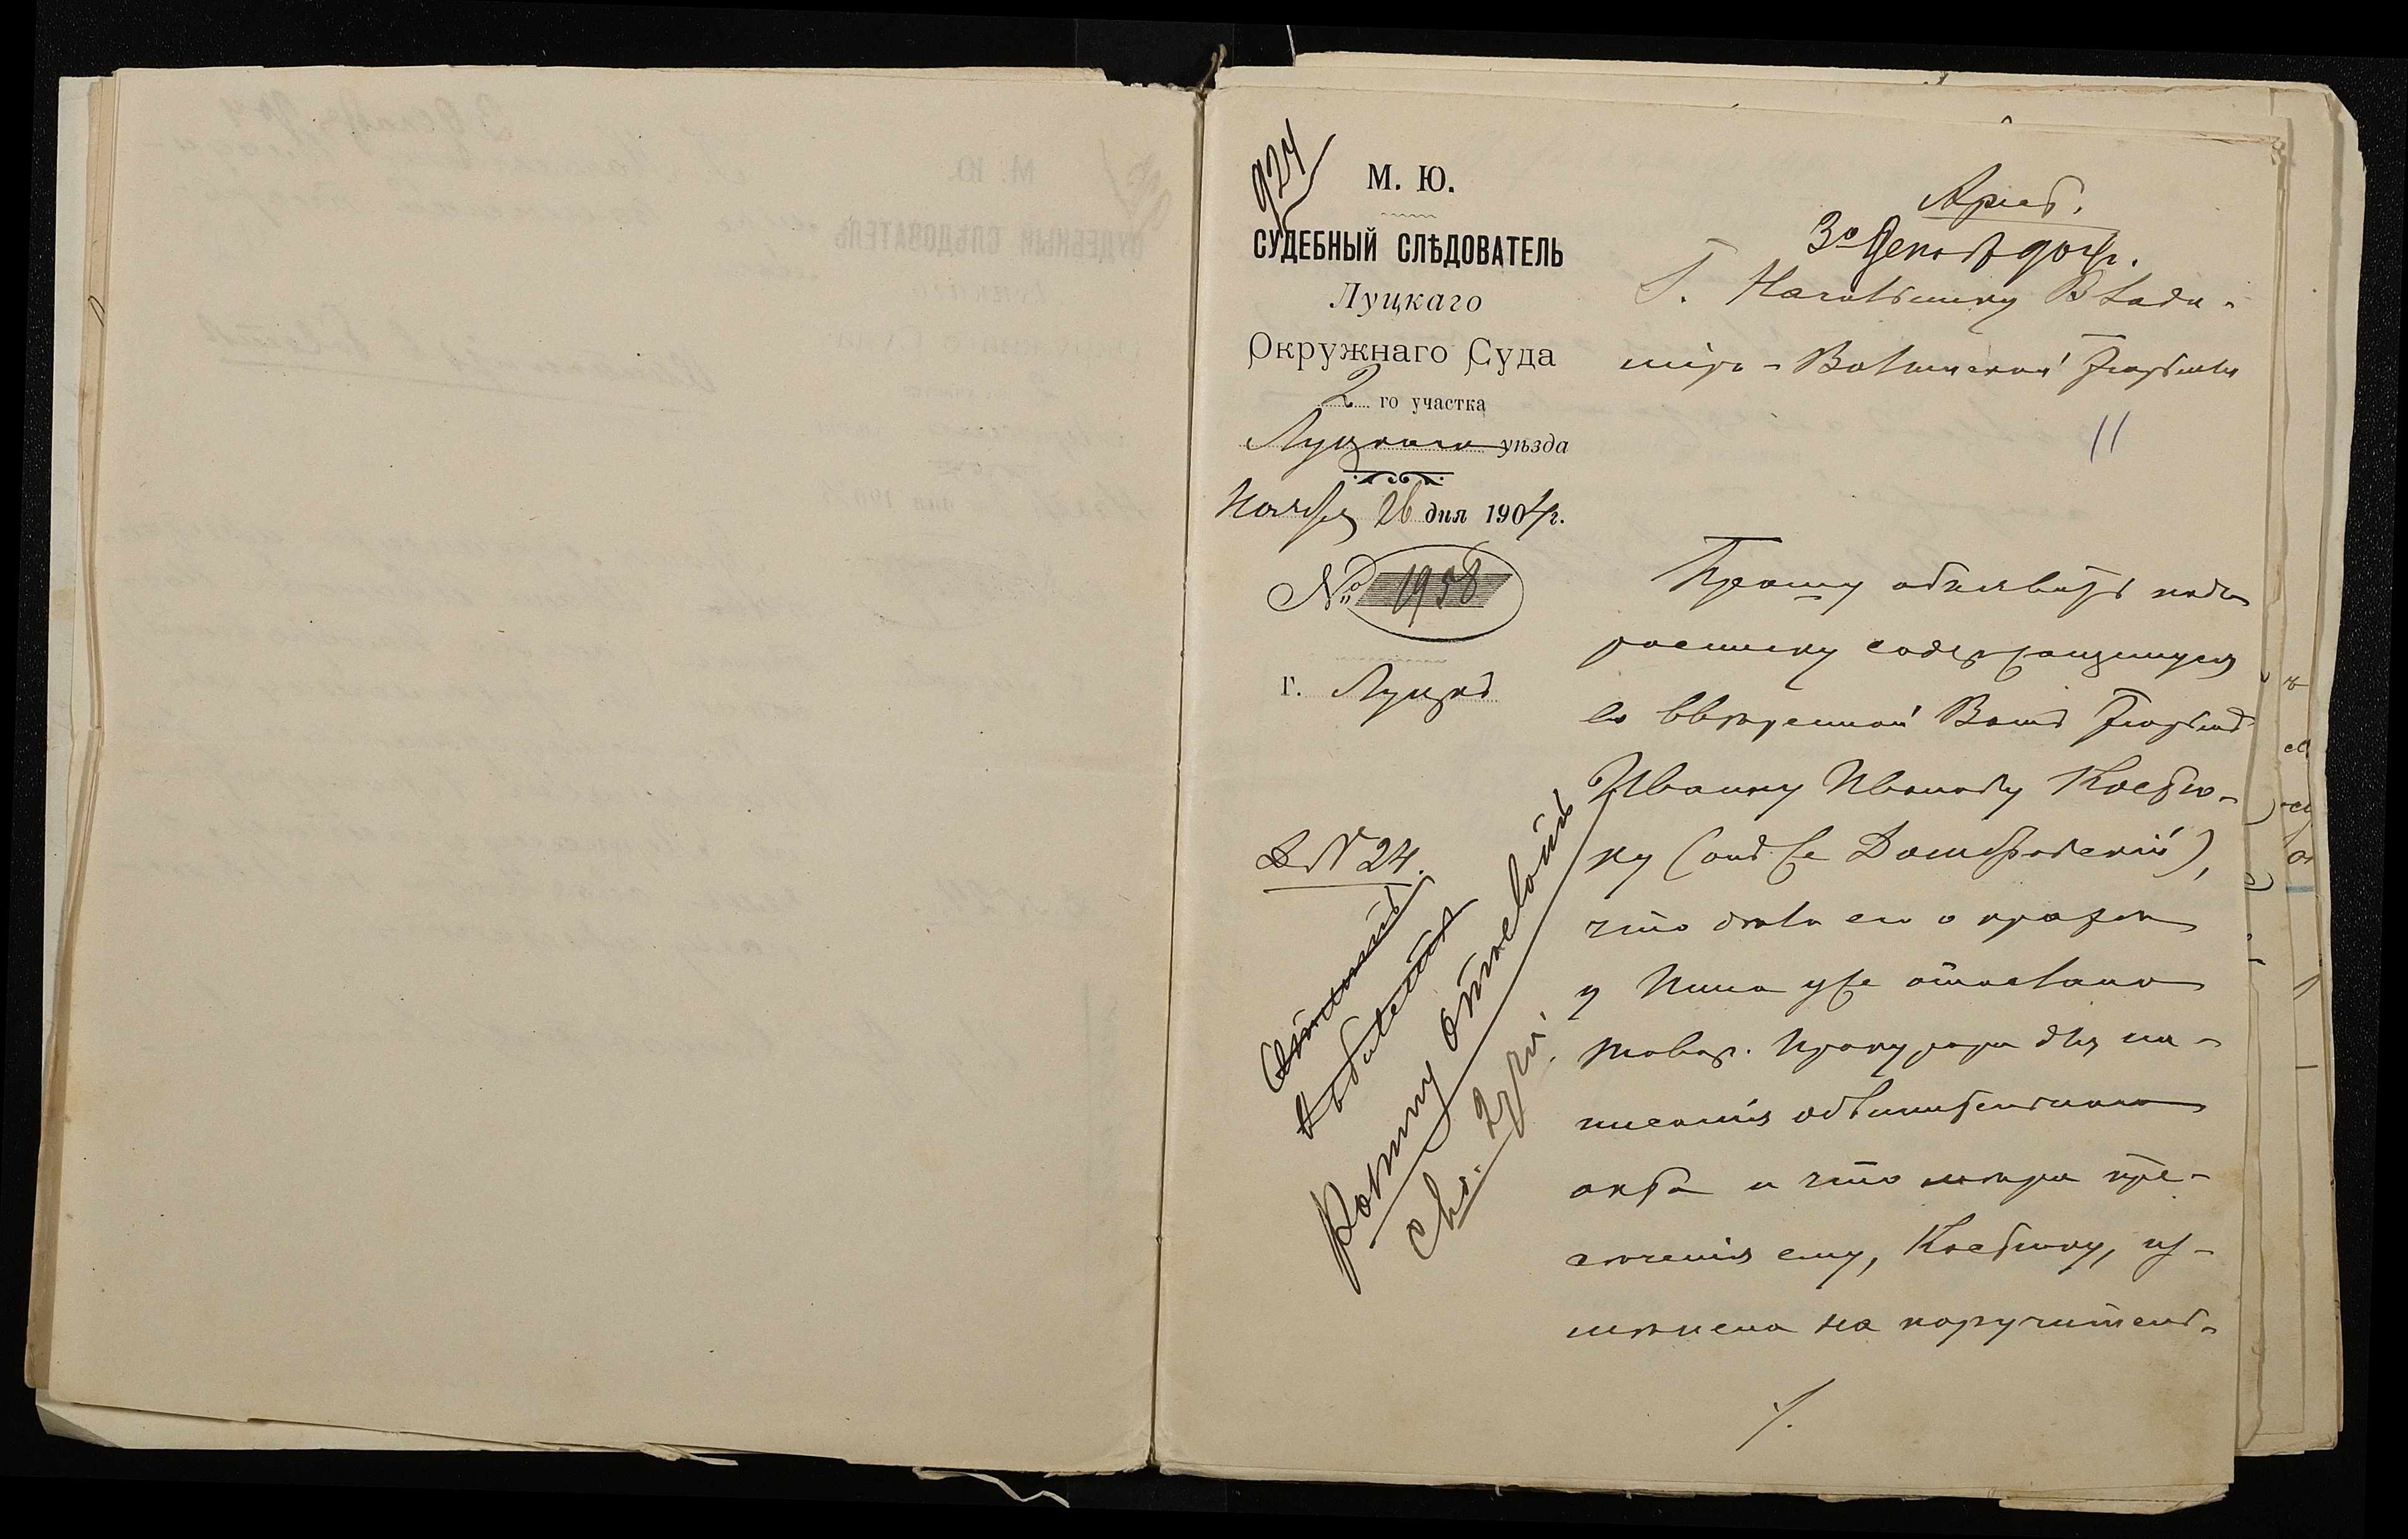 924
М. Ю.
СУДЕБНЫЙ СЛѢДОВАТЕЛЬ
Луцкаго
Окружнаго Суда
2 го участка
Луцкаго уѣзда
Ноября 26 дня 1904 г.
№ 1958
г. Луцкъ
Д № 24.
Арест.
3го Декабр 904 г.
Г. Начальнику Влади-
міро-Волынской Тюрьмы
11
Прошу объявить подъ
росписку содержащемуся
во ввѣренной Вамъ Тюрьмѣ
Ивану Иванову Костю-
ку (онъ же Домбровскій),
что дѣло его о кражѣ
у Нига уже отослано
товар. Прокурора для на-
писанія обвинительнаго
акта и что мѣра пре-
сѣченія ему, Костюку, из-
мѣнена на поручительст-
Копију
/.